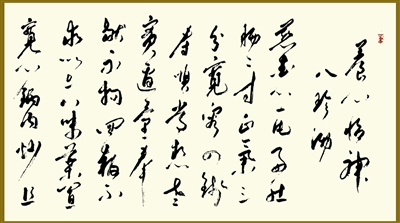 養心怡神
八珍汤
慈爱心一片好肚
肠二寸正氣三
分寬容四錢
孝順常想老
實適量奉
献不拘回報不
求以上八味藥置
寬心鍋内炒